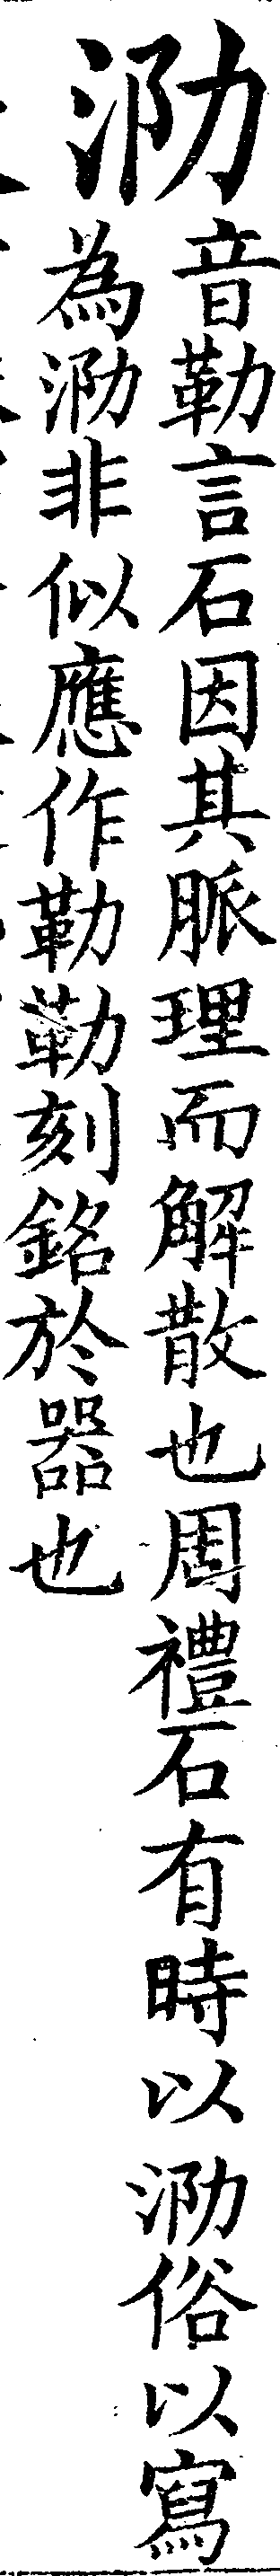 泐
音勒言石因其脈理而解散也周禮石有時以泐俗以寫
為泐非似應作勒勒刻銘於器也